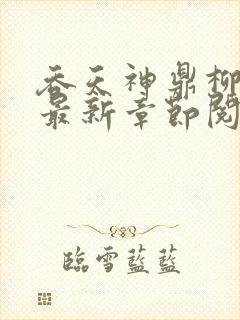 吞天神鼎柳
最新章節閱
臨雪藍藍